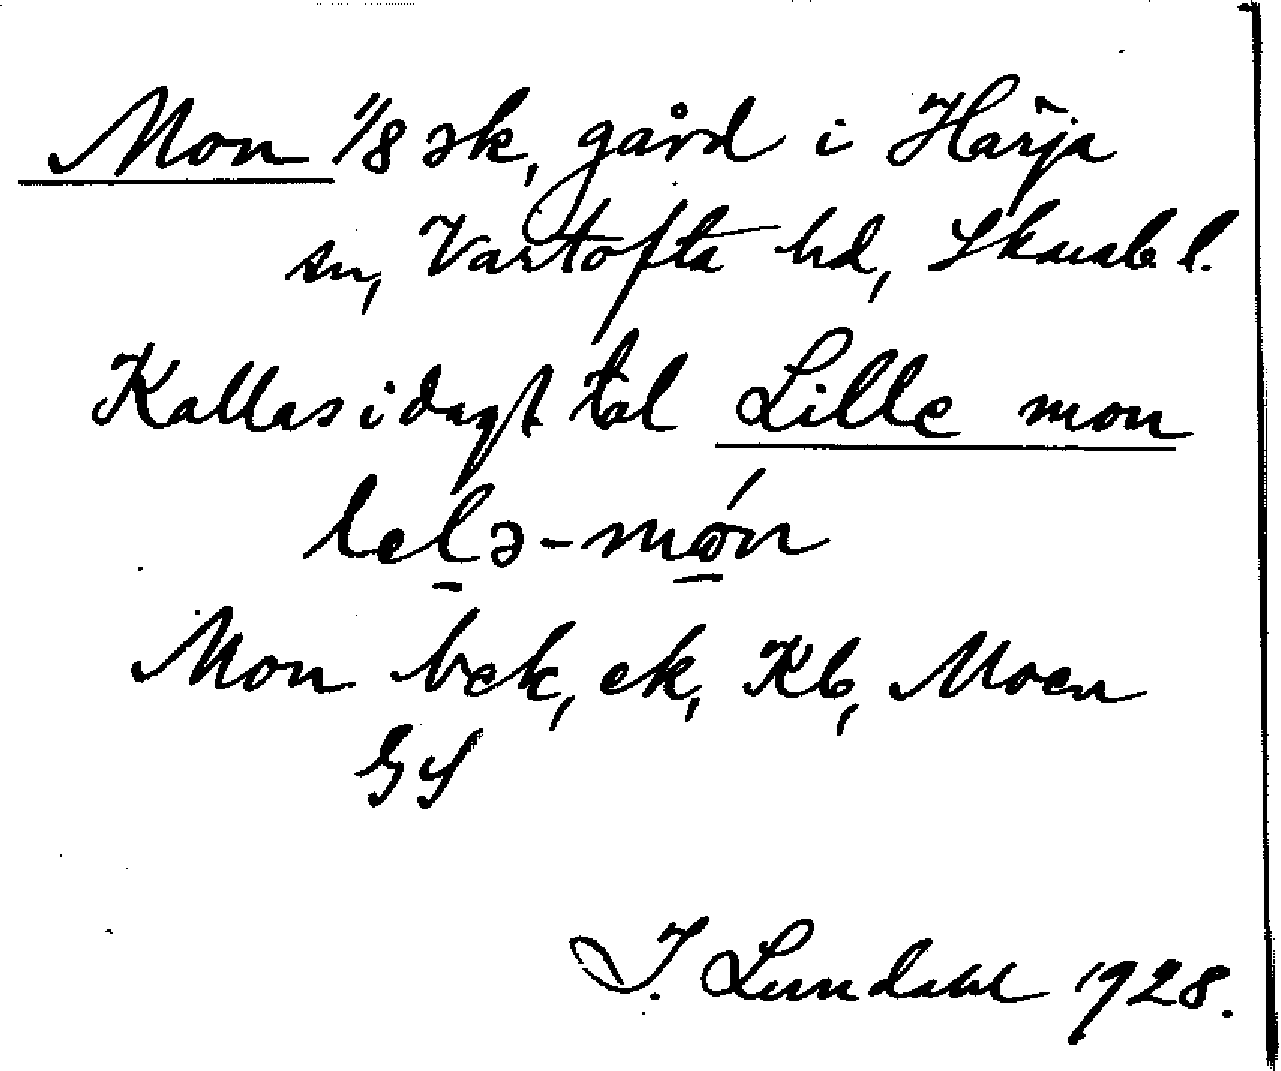 Mon 1/8 sk, gård i Härja
sn, Vartofta hd, Skarab. l.
Kallas i dagl. tal Lille mon
lelə-món
Mon bck, ek, Kb, Moen
GS
I. Lundahl 1928.